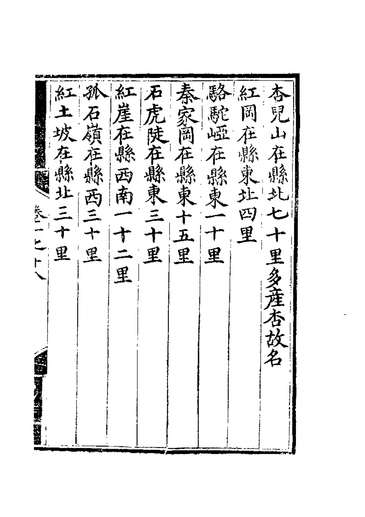 杏兒山在縣北七十里多產杏故名
紅岡在縣東北四里
駱駝崾在縣東一十里
秦家岡在縣東十五里
石虎陡在縣東三十里
紅崖在縣西南一十二里
孤石嶺在縣西三十里
紅土坡在縣北三十里